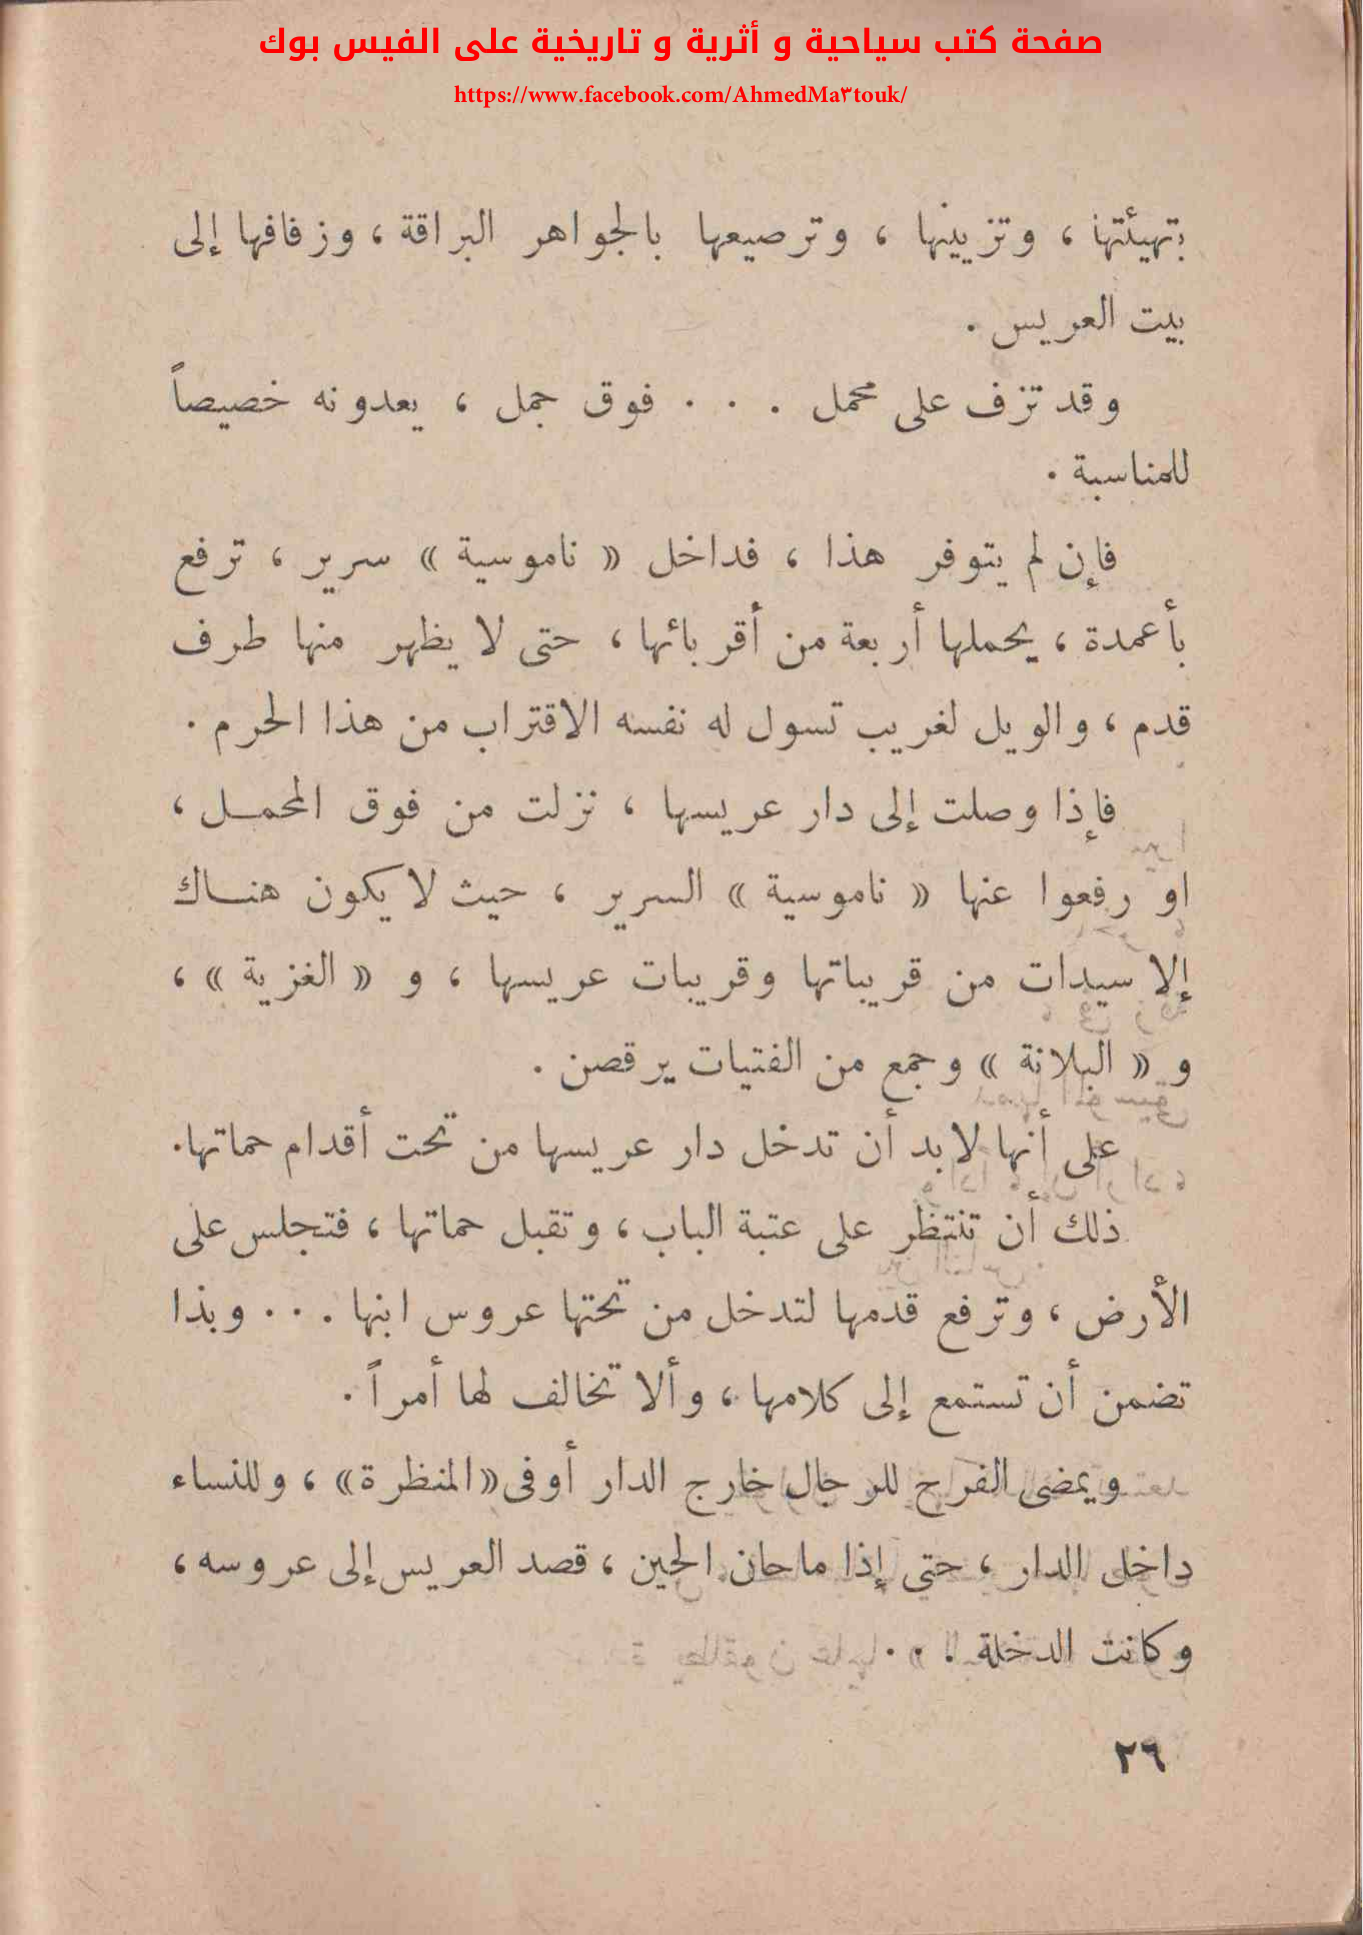 صفحة كتب سياحية و أثرية و تاريخية على الفيس بوك
https://www.facebook.com/AhmedMa٣touk/
بتهيئتها ، وتزيينها ، وترصيعها بالجواهر البراقة ، وزفافها إلى
بيت العريس .
وقد تزف على محمل . . . فوق جمل ، يعدونه خصيصاً
للمناسبة .
فإن لم يتوفر هذا ، فداخل « ناموسية » سرير ، ترفع
بأعمدة ، يحملها أربعة من أقربائها ، حتى لا يظهر منها طرف
قدم ، والويل لغريب تسول له نفسه الاقتراب من هذا الحرم .
فإذا وصلت إلى دار عريسها ، نزلت من فوق المحمل ،
او رفعوا عنها « ناموسية » السرير ، حيث لا يكون هناك
إلا سيدات من قريباتها وقريبات عريسها ، و « الغزية » ،
و « البلانة » وجمع من الفتيات يرقصن .
على أنها لابد أن تدخل دار عريسها من تحت أقدام حماتها.
ذلك أن تنتظر على عتبة الباب ، وتقبل حماتها ، فتجلس على
الأرض ، وترفع قدمها لتدخل من تحتها عروس ابنها . . . وبذا
تضمن أن تستمع إلى كلامها ، وألا تخالف لها أمراً .
ويمضى الفرح للرجال خارج الدار أوفى «المنظرة» ، وللنساء
داخل الدار ، حتى إذا ماحان الحين ، قصد العريس إلى عروسه ،
وكانت الدخلة . . .
٢٦